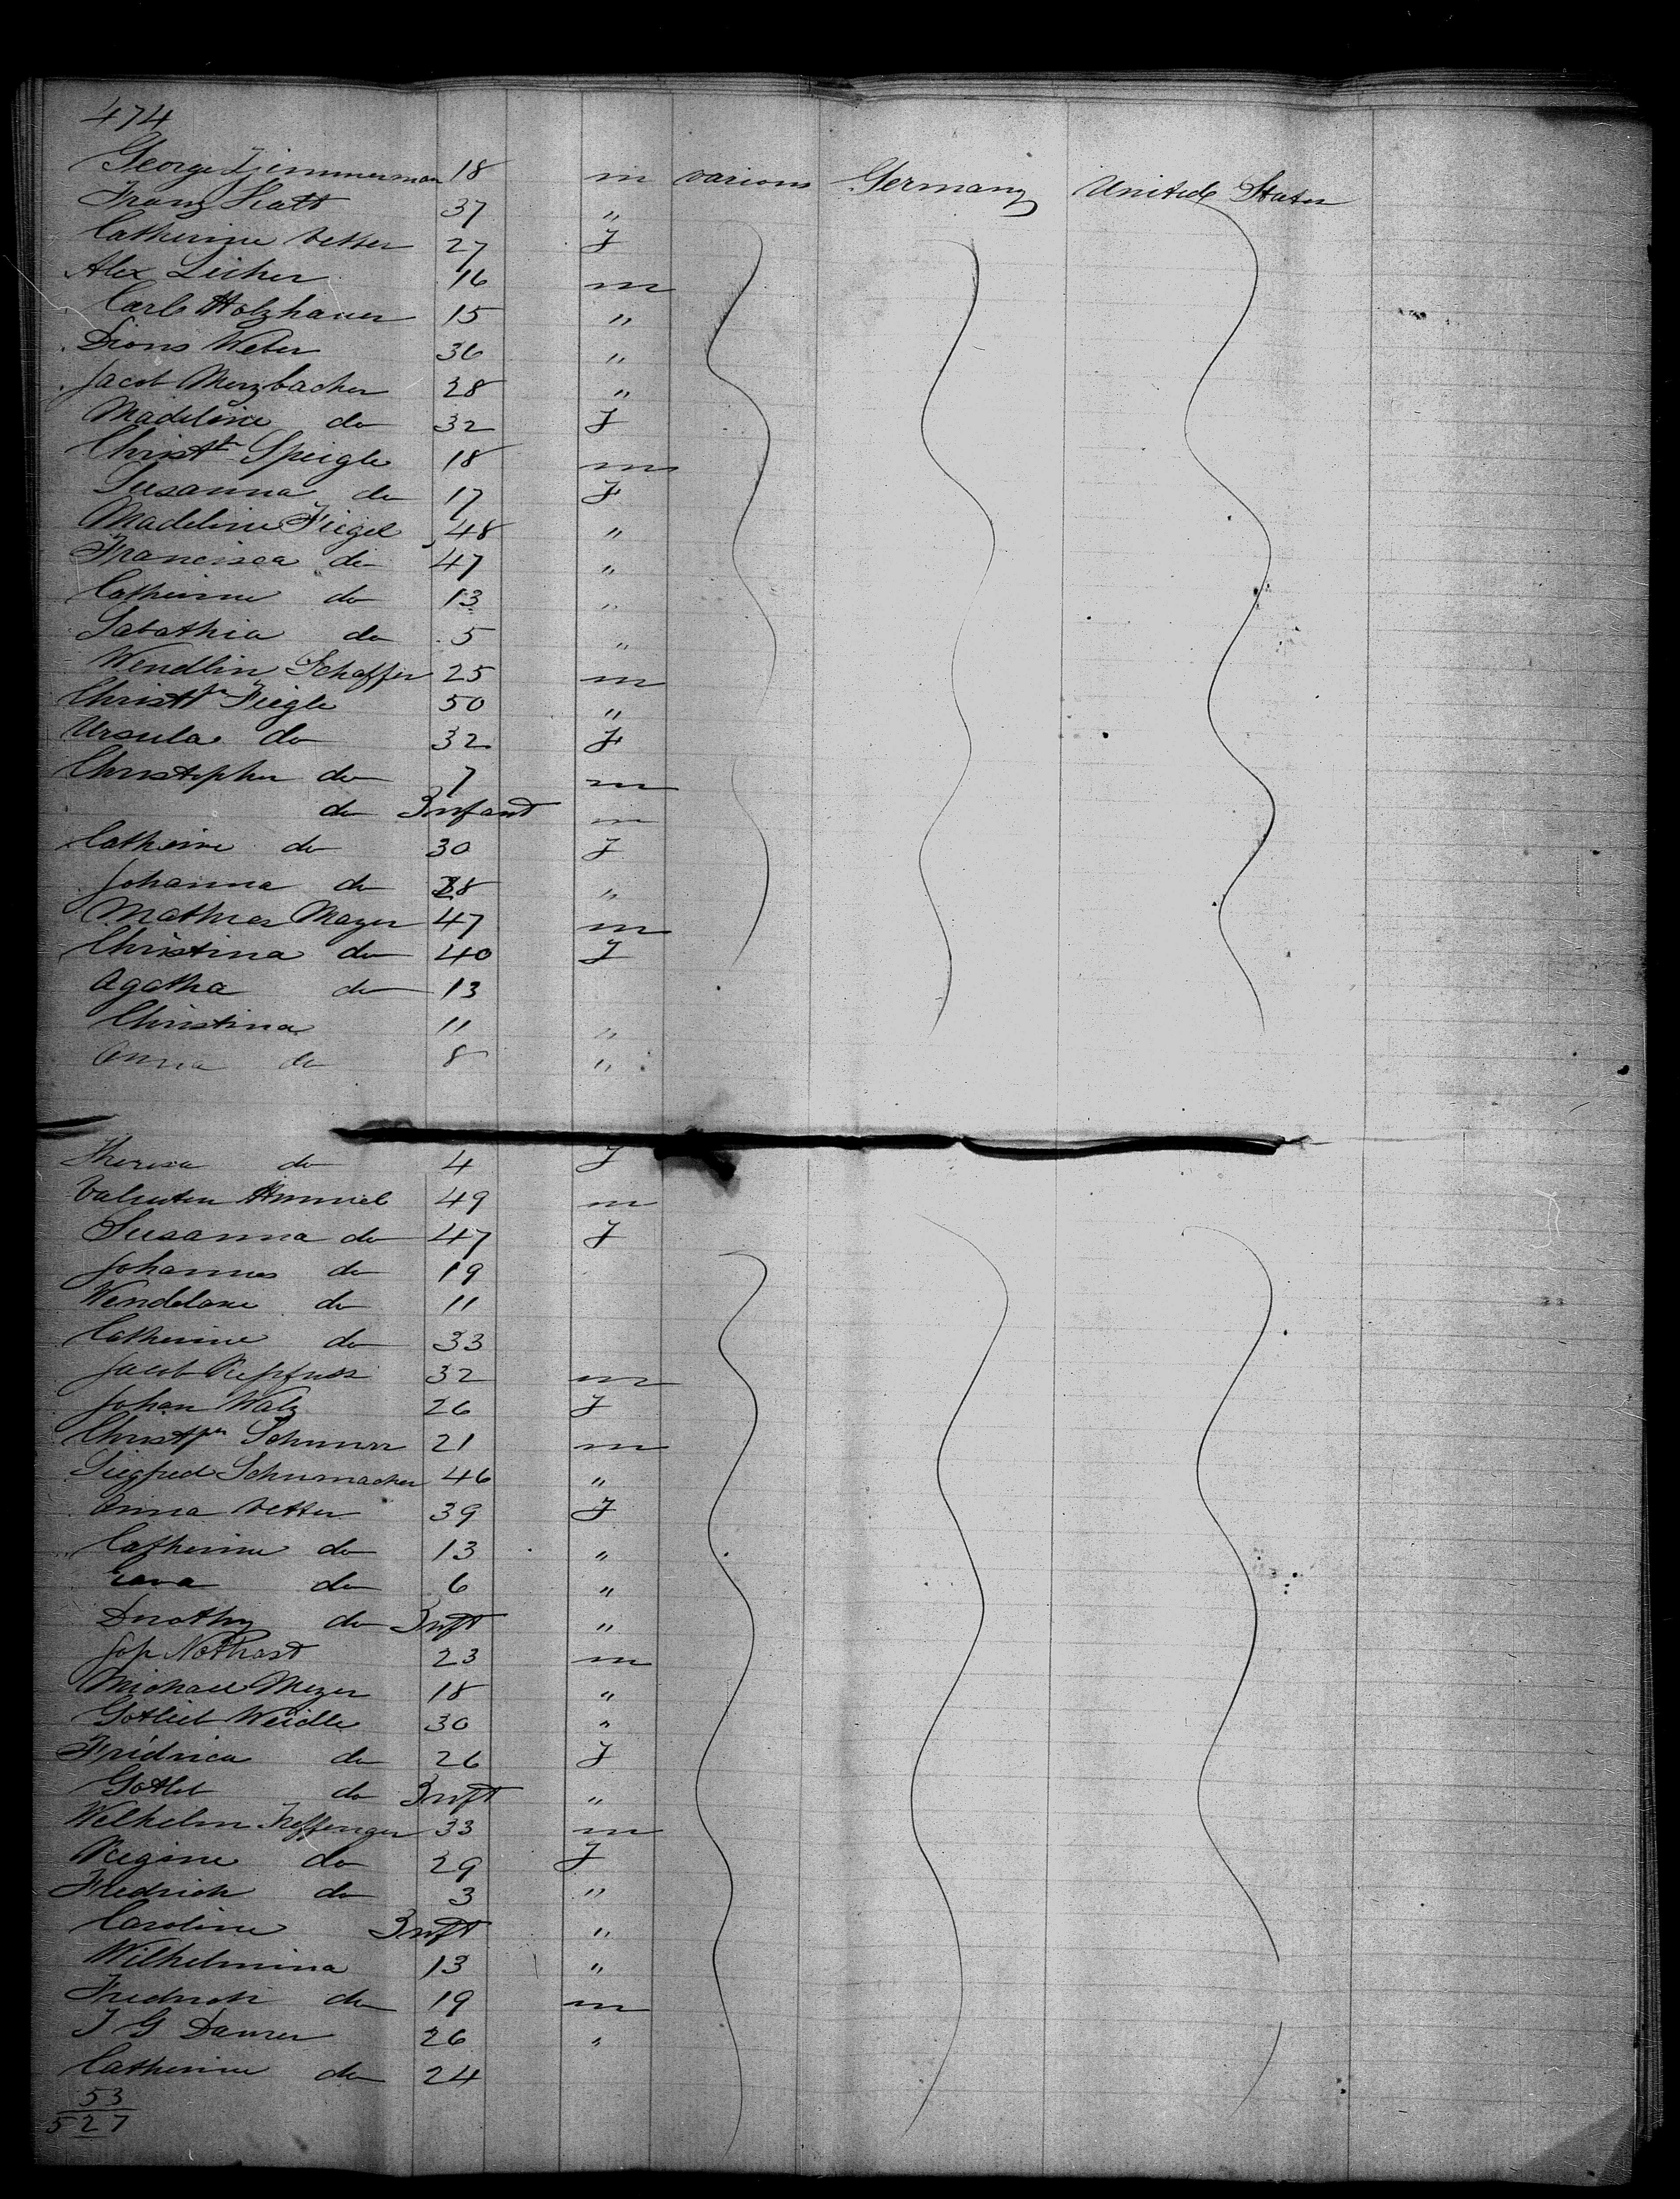 474
George Zimmerman 18 m various Germany United States
Franz Katt 37 "
Catherine Vetter 27 F
Alex Licher 16 m
Carl Holzhauer 15 "
Dions Weber 36 "
Jacob Merzbacher 28 "
Madeline do 32 F
Christn Speigle 18 m
Susanna do 17 F
Madeline Fiegel 48 "
Francisca do 47 "
Catherine do 13 "
Sabathia do 5 "
Wendlin Schaffer 25 m
Christn Fiegle 50 "
Ursula do 32 F
Christopher do 7 m
do Infant m
Catherine do 30 F
Johanna do 28 "
Mathias Mayer 47 m
Christina do 40 F
Agatha do 13
Christina 11 "
Anna do 8 "
Theresa do 4 F
Valentin Himmel 49 m
Susanna do 47 F
Johannes do 19
Wendelane do 11
Catherine do 33
Jacob 32 m
Johan Walz 26 F
Christpn Schnurr 21 m
Siegfried Schumacher 46 "
Anna Vetter 39 F
Catherine do 13 "
do 6 "
Dorothy do Inft "
Jos Nothast 23 m
Michael Mezer 18 "
Gotlieb Weidle 30 "
Fridrica do 26 F
Gotleb do Inft "
Wilhelm 33 m
Regine do 29 F
Fredrich do 3 "
Caroline Inft "
Wilhelmina 13 "
Fredrich do 19 m
J G Daurer 26 "
Catherine do 24
53
527